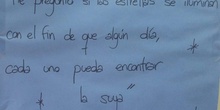 me pregunto si las estrellas se iluminan
con el fin de que algún día,
cada uno pueda encontrar
la suya"